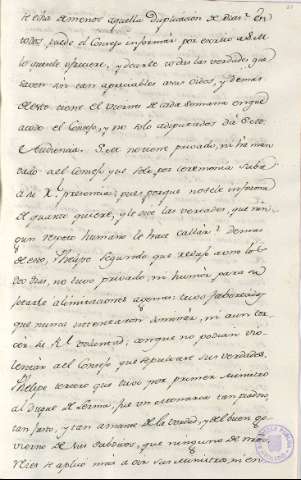 se echa de menos aquella Duplicacion de Dias? En
todos puede el Consejo informar por escrito a S.M.
lo que se ofreciere, y decirle todas las verdades que
fueren tan apreciables a sus oidos, y demas
de esto tiene el Viernes de cada semana en que
acude el Consejo, y no solo a disputados da S.M.
Audiencia. S.M. no tiene privado, ni ha man
dado al Consejo que solo por ceremonia suba
a su Rl. presencia: pues porque no se le informa
de quanto quiere, y le dice las verdades, que nin-
gun respeto humano le hace callar? demas
de eso, Phelipe Segundo que redujo a uno los
dos Dias, no tuvo privado, ni humor para su
getarse a limitaciones agenas: tuvo favorecidos
que nunca intentaron dominar, ni aun tor
cer su Rl. voluntad, aunque no podian vio-
lentar al Consejo que sepultase sus verdades.
Phelipe tercero que tuvo por primer Ministro
al Duque de Lerma, fue un Monarca tan piadoso,
tan santo, y tan amante de la verdad, y del buen go
vierno de sus Subditos, que ninguno de
se aplicó mas a oir sus Ministros, ni en